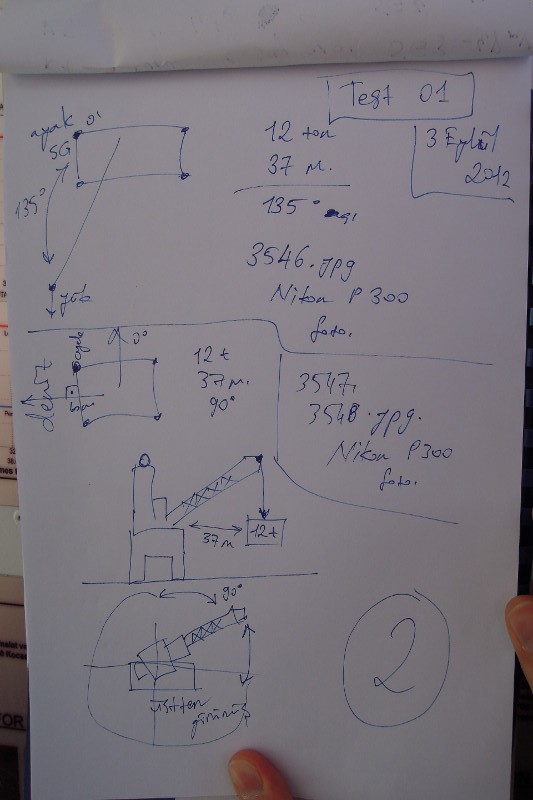 Test 01
3 Eylül
2012
ayak 0°
SG
135°
yük
12 ton
37 m.
135° açı
3546.jpg
Nikon P300
foto.
deniz
0°
12 t
37 m.
90°
3547,
3548.jpg.
Nikon P300
foto.
37 m
12 t
90°
üstten
görünüş
2